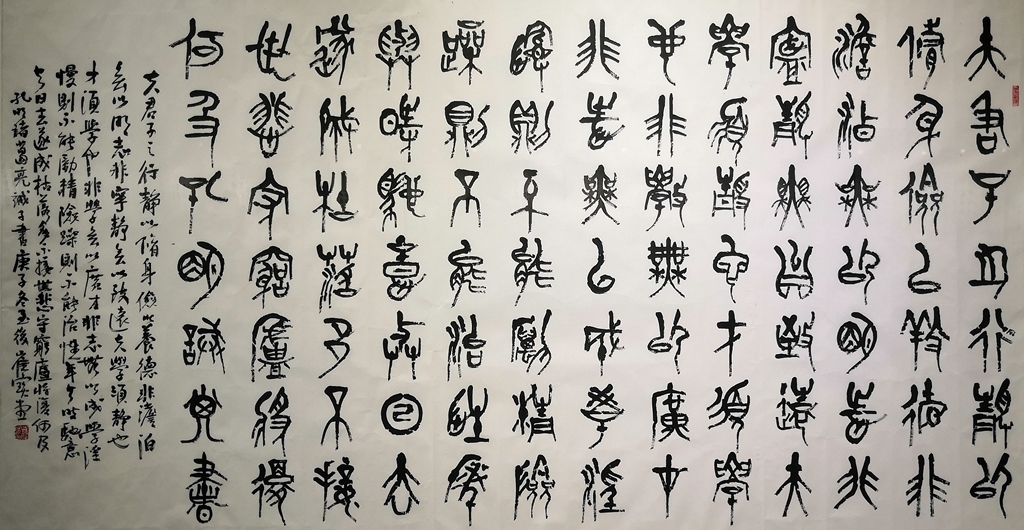 夫君子之行靜以
脩身儉以養德非
澹泊無以明志非
寧靜無以致遠夫
學須靜也才須學
也非學無以廣才
非志無以成學淫
慢則不能勵精險
躁則不能治性年
與時馳意與日去
遂成枯落多不接
世悲守窮廬將復
何及孔明誡子書
夫君子之行靜以脩身儉以養德非澹泊
無以明志非寧靜無以致遠夫學須靜也
才須學也非學無以廣才非志無以成學淫
慢則不能勵精險躁則不能治性年與時馳意
與日去遂成枯落多不接世悲守窮廬將復何及
孔明諸葛亮誡子書庚子冬至後崔